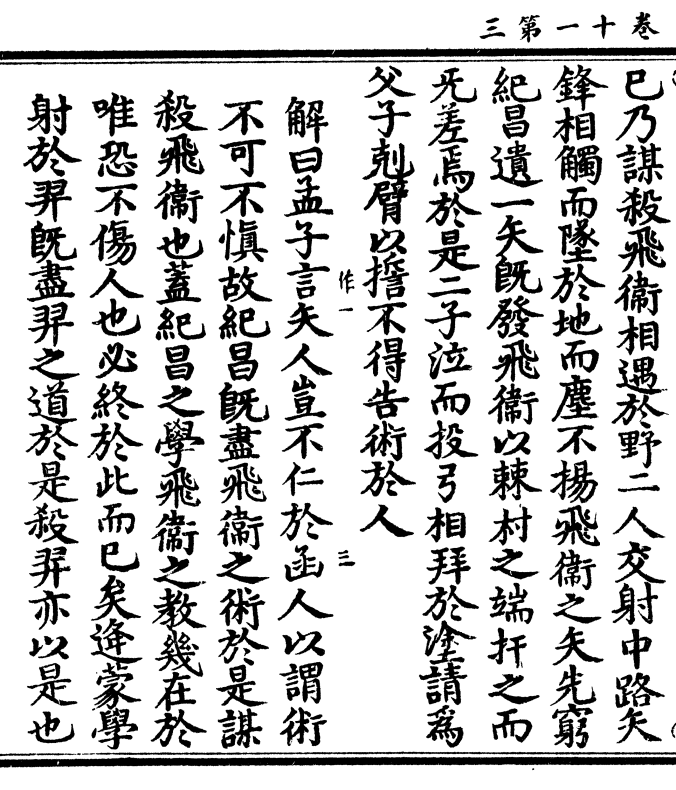 卷十一第三
已乃謀殺飛衞相遇於野二人交射中路矢
鋒相觸而墜於地而塵不揚飛衞之矢先窮
紀昌遺一矢旣發飛衞以棘村之端扞之而
旡差焉於是二子泣而投弓相拜於塗請爲
父子剋臂以擔不得告術於人
作一
解曰孟子言矢人豈不仁於函人以謂術
三
不可不愼故紀昌旣盡飛衞之術於是謀
殺飛衞也蓋紀昌之學飛衞之教幾在於
唯恐不傷人也必終於此而已矣逄蒙學
射於羿旣盡羿之道於是殺羿亦以是也